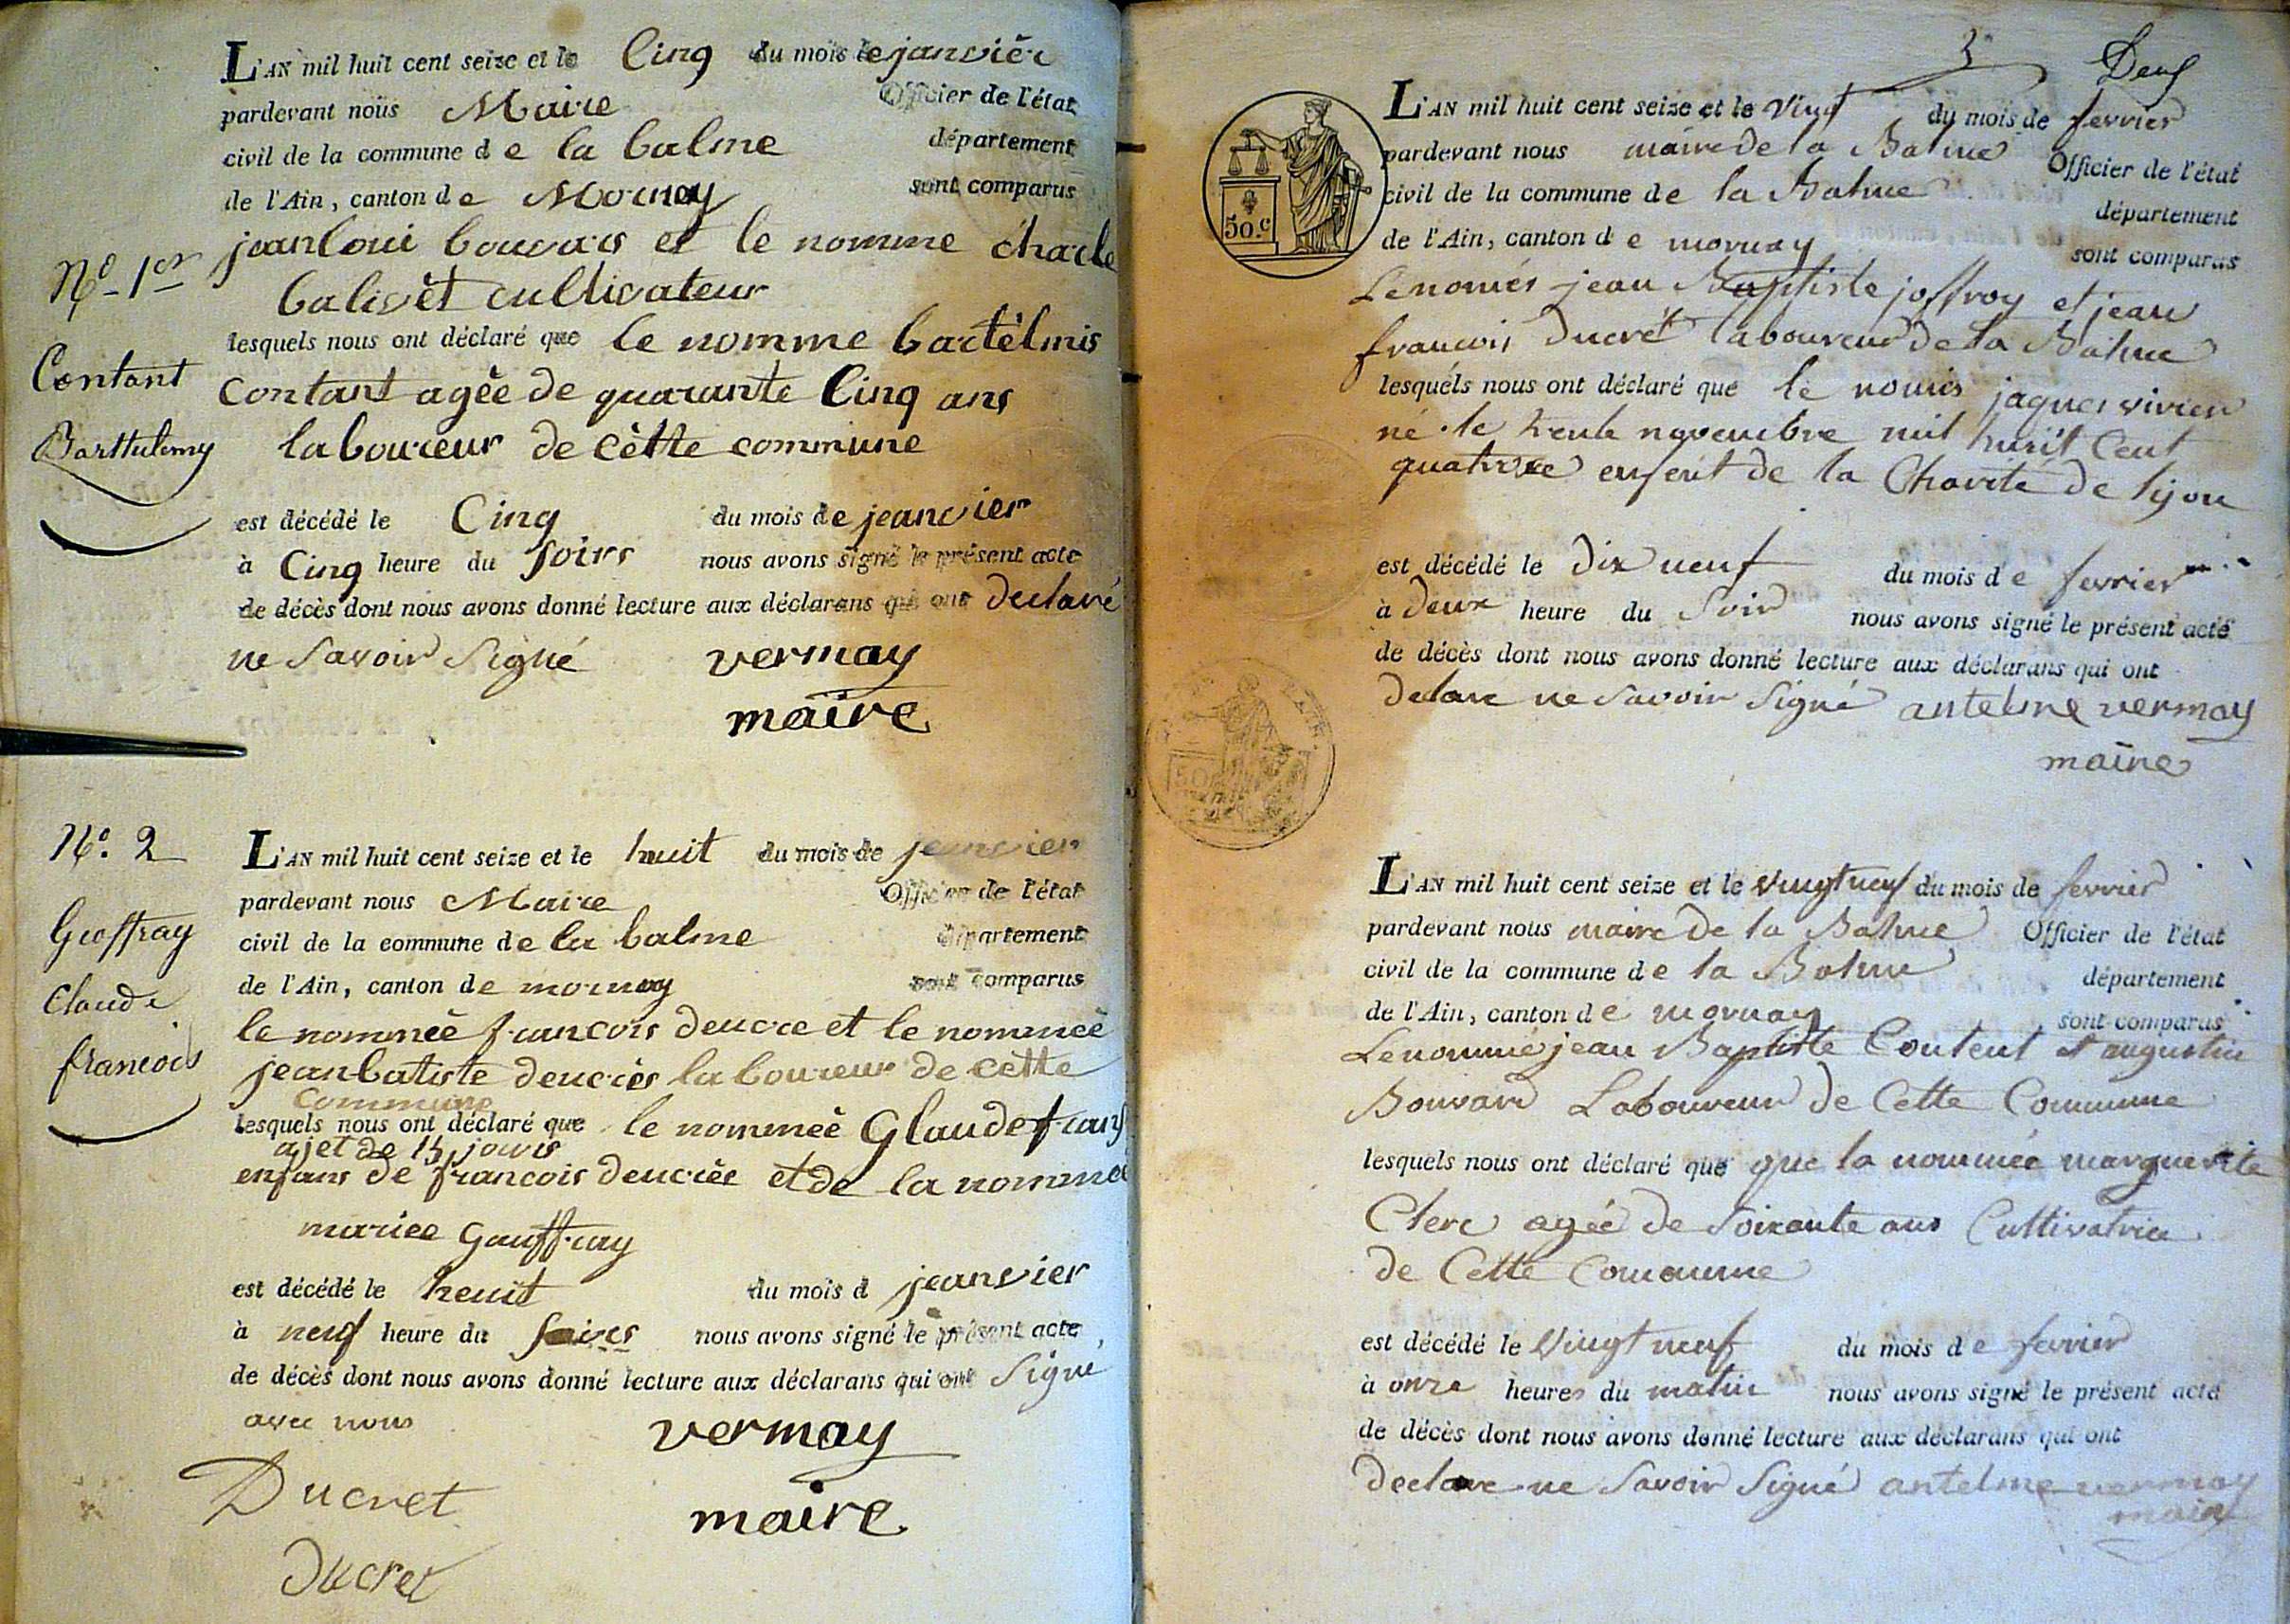 L'AN mil huit cent seize et le Cinq du mois de janvièr
pardevant nous Maire Officier de l'état
civil de la commune de la balme département
de l'Ain, canton de Mornay sont comparus
jeanloui bouvais et le nomme charle
balivet cultivateur
lesquels nous ont déclaré que le nomme bartèlmis
contant agèe de quarante Cinq ans
laboureur de cètte commune
est décédé le Cinq du mois de jeanvier
à Cinq heure du soirs nous avons signé le présent acte
de décès dont nous avons donné lecture aux déclarans qui ont declaré
ne savoir signé vermay
maire
No. 1er
Contant
Barthelemy
No. 2
Geoffray
Claude
francois
L'AN mil huit cent seize et le huit du mois de jeanvier
pardevant nous Maire Officier de l'état
civil de la commune de la balme département
de l'Ain, canton de mornay sont comparus
le nommèe francois deucre et le nommèe
jeanbatiste deucrès laboureur de cette
commune
lesquels nous ont déclaré que le nommèè Glaudefrans
ajet de 15 jours
enfans de francois deucrèe et de la nomme
mariee Gauffray
est décédé le heuit du mois d jeanvier
à neuf heure du soires nous avons signé le présent acte
de décès dont nous avons donné lecture aux déclarans qui ont signé
avec nous vermay
Ducret maire
Ducret
3 Deux
50.c
L'AN mil huit cent seize et le vingt du mois de fevrier
pardevant nous maire de la Balme Officier de l'état
civil de la commune de la Balme département
de l'Ain, canton de mornay sont comparus
Lenomés jean Baptiste joffroy et jean
francois Ducret laboureur de la Balme
lesquels nous ont déclaré que le només jaques vivien
né le trente novembre mil huit Cent
quatorze enfent de la Charité de lijon
est décédé le dix neuf du mois de fevrier
à deux heure du Soir nous avons signé le présent acte
de décès dont nous avons donné lecture aux déclarans qui ont
declare ne savoir signé antelme vermay
maire
L'AN mil huit cent seize et le vingt neuf du mois de fevrier
pardevant nous maire de la Balme Officier de l'état
civil de la commune de la Balme département
de l'Ain, canton de mornay sont comparus
Lenommé jean Baptiste Content et augustin
Bouvard Laboureur de Cette Commune
lesquels nous ont déclaré que que la nommée marguerite
Clerc agée de soixante ans Cultivatrice
de Cette Comomune
est décédé le vingt neuf du mois de fevrier
à onze heures du matin nous avons signé le présent acte
de décès dont nous avons donné lecture aux déclarans qui ont
declare ne savoir signé antelme vermay
maire